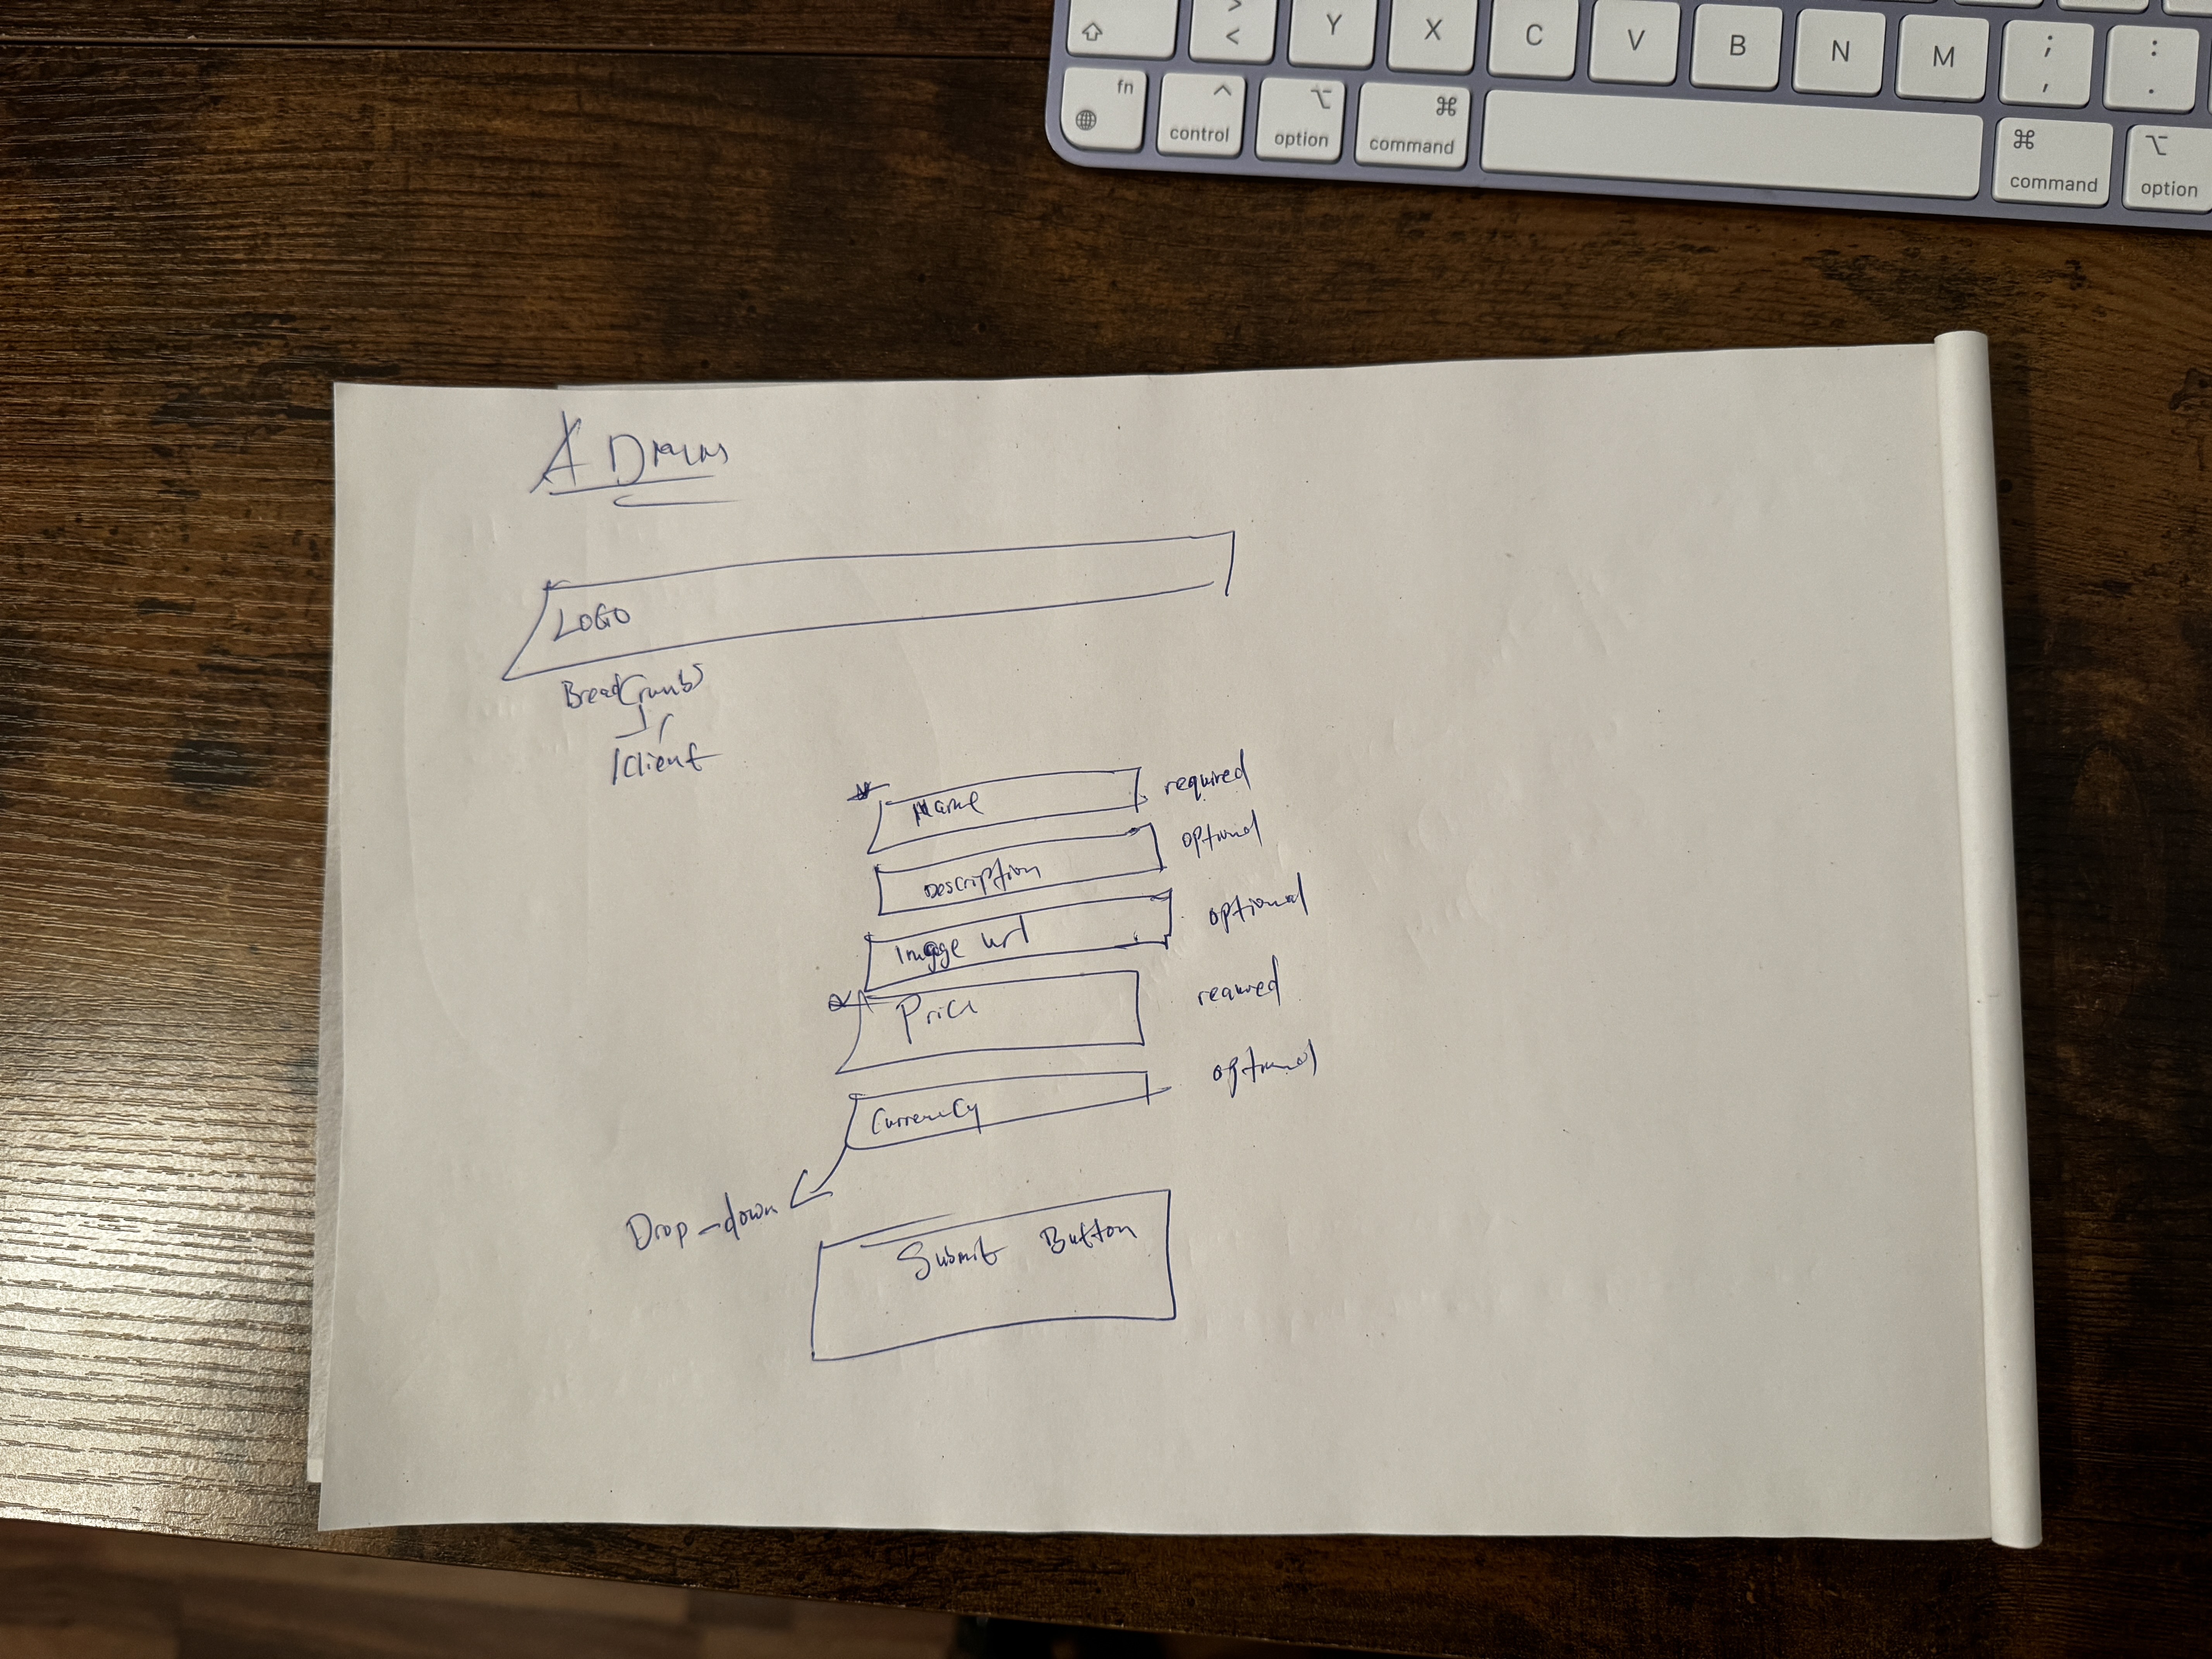 > Y X C V B N M ; :
< , .
fn control option command command option
LOGO
BreadCrumbs
/Client
* Name required
Description optional
Image url optional
* Price required
Currency optional
Drop-down
Submit Button